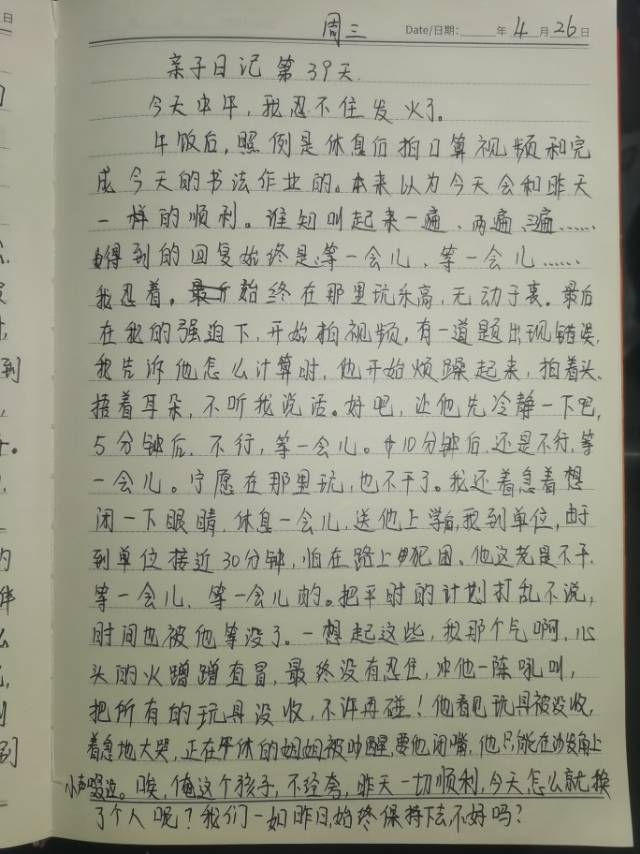 日
周三 Date/日期: 年 4 月 26 日
亲子日记 第39天
今天中午，我忍不住发火了。
午饭后，照例是休息后拍口算视频和完
成今天的书法作业的。本来以为今天会和昨天
一样的顺利。谁知叫起来一遍、两遍、三遍……
得到的回复始终是：等一会儿、等一会儿……
我忍着。始终在那里玩乐高，无动于衷。最后
在我的强迫下，开始拍视频，有一道题出现错误，
我告诉他怎么计算时，他开始烦躁起来，拍着头、
捂着耳朵，不听我说话。好吧，让他先冷静一下吧，
5分钟后，不行，等一会儿。10分钟后，还是不行，等
一会儿。宁愿在那里玩，也不干了。我还着急着想
闭一下眼睛，休息一会儿，送他上学后，我到单位，由于
到单位接近30分钟，怕在路上犯困。他这老是不干，
等一会儿、等一会儿的。把平时的计划打乱不说，
时间也被他等没了。一想起这些，我那个气啊，心
头的火蹭蹭直冒，最终没有忍住，冲他一陈吼叫，
把所有的玩具没收，不许再碰！他看见玩具被没收，
着急地大哭，正在午休的姐姐被吵醒，要他闭嘴，他只能在沙发角上
小声啜泣。唉，俺这个孩子，不经夸，昨天一切顺利，今天怎么就换
了个人呢？我们一如昨日，始终保持下去，不好吗？